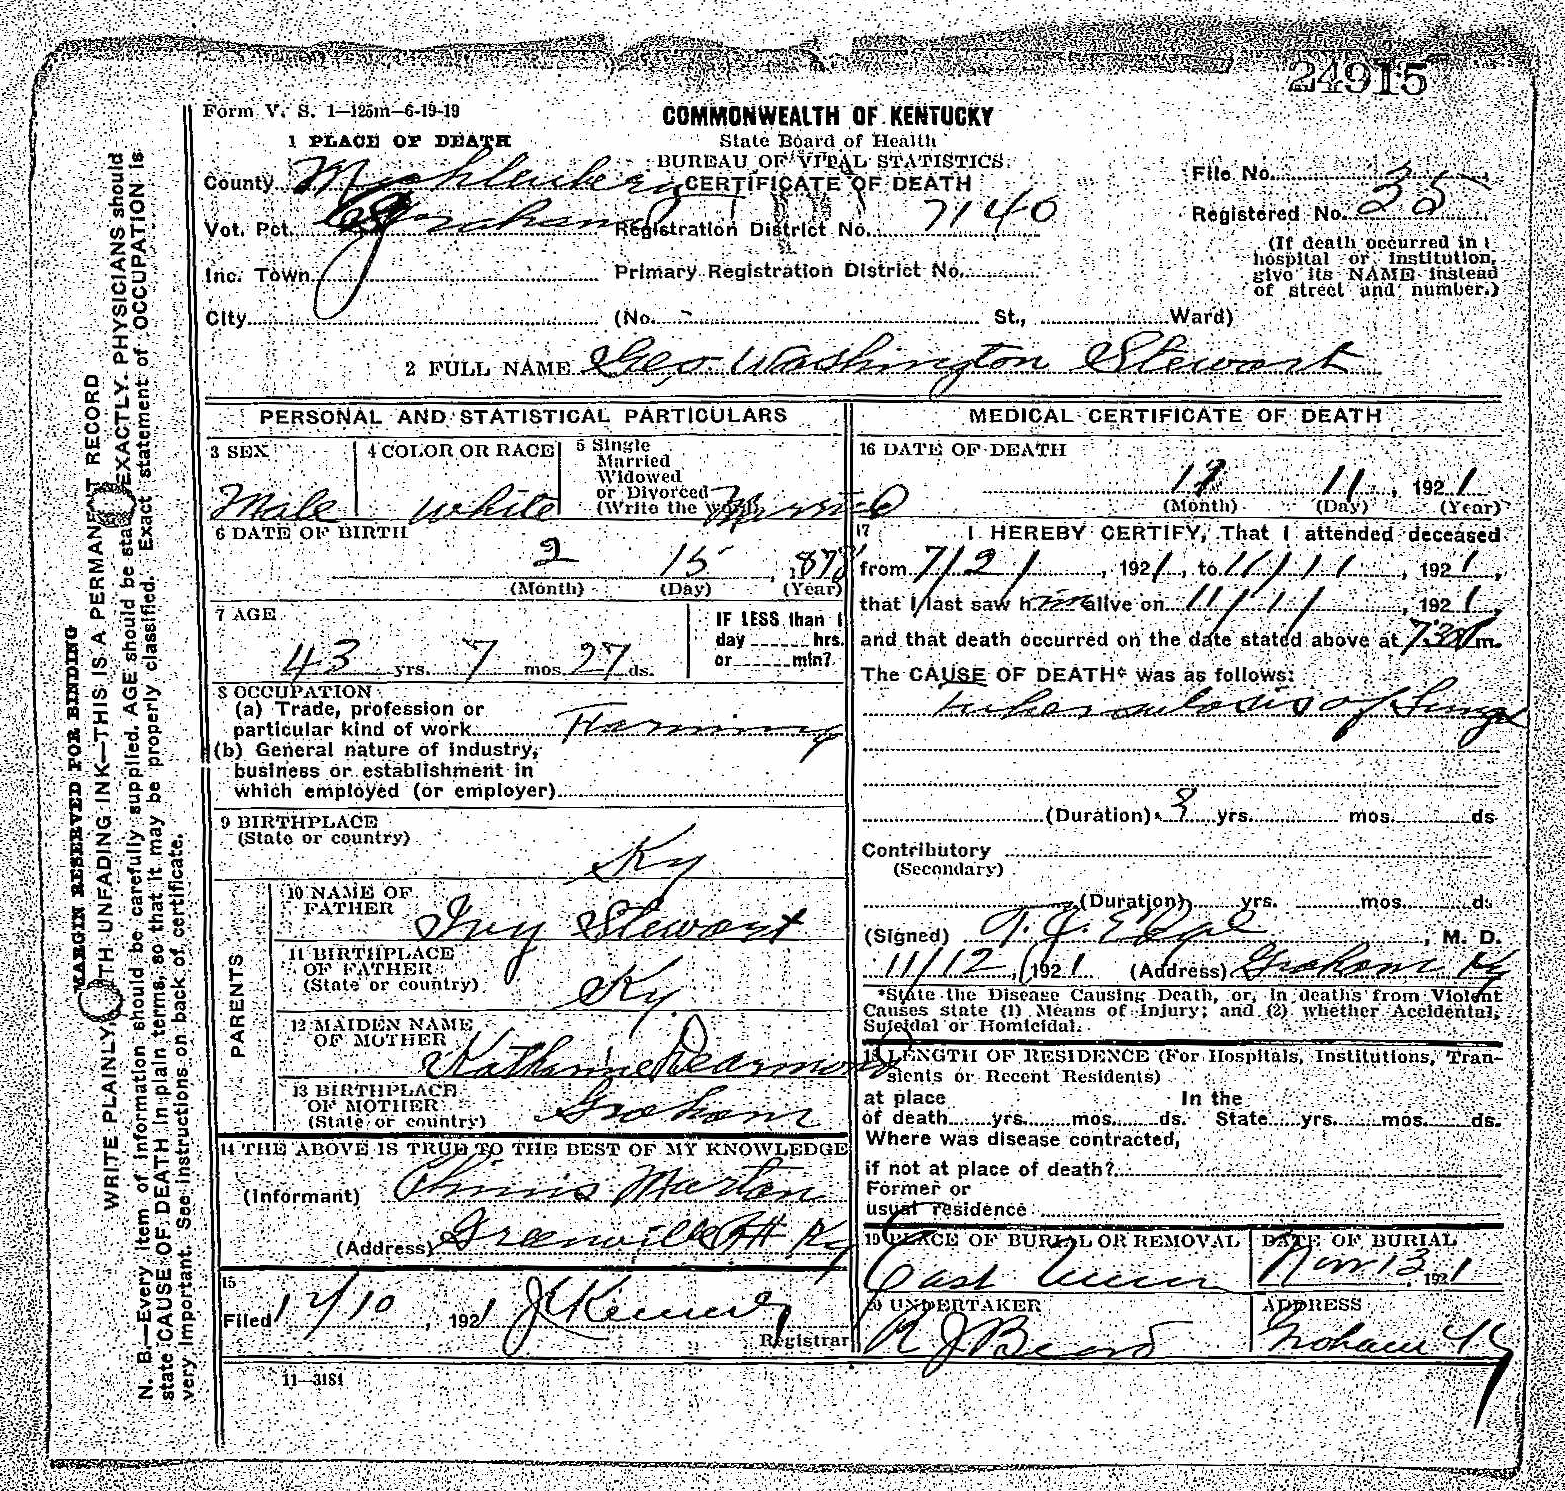 24915
Form V. S. 1—125m—6-19-19
COMMONWEALTH OF KENTUCKY
1 PLACE OF DEATH
State Board of Health
BUREAU OF VITAL STATISTICS
CERTIFICATE OF DEATH
County Muhlenberg
File No.
Vot. Pct. Graham
Registration District No. 7140
Registered No. 35
(If death occurred in a hospital or institution, give its NAME instead of street and number.)
Inc. Town
Primary Registration District No.
City (No. St., Ward)
2 FULL NAME Geo. Washington Stewart
PERSONAL AND STATISTICAL PARTICULARS
3 SEX Male
4 COLOR OR RACE White
5 Single Married Widowed or Divorced (Write the word) Married
6 DATE OF BIRTH
2 15, 1878
(Month) (Day) (Year)
7 AGE
43 yrs. 7 mos. 27 ds.
IF LESS than 1 day hrs. or min?
8 OCCUPATION
(a) Trade, profession or particular kind of work Farming
(b) General nature of industry, business or establishment in which employed (or employer)
9 BIRTHPLACE
(State or country)
Ky
PARENTS
10 NAME OF FATHER Ivy Stewart
11 BIRTHPLACE OF FATHER (State or country) Ky.
12 MAIDEN NAME OF MOTHER Katharine Dearmond
13 BIRTHPLACE OF MOTHER (State or country) Graham
14 THE ABOVE IS TRUE TO THE BEST OF MY KNOWLEDGE
(Informant) Martin
(Address) Greenville Ky
15
Filed 12/10, 1921 Registrar
11—3184
MEDICAL CERTIFICATE OF DEATH
16 DATE OF DEATH
11, 1921
(Month) (Day) (Year)
17 I HEREBY CERTIFY, That I attended deceased
from 7/21, 1921, to 11/11, 1921,
that I last saw him alive on 11/11, 1921,
and that death occurred on the date stated above at m.
The CAUSE OF DEATH* was as follows:
Tuberculosis of Lungs
(Duration) yrs. mos. ds
Contributory
(Secondary)
(Duration) yrs. mos. ds.
(Signed) T. J. , M. D.
11/12, 1921 (Address) Graham Ky
*State the Disease Causing Death, or, in deaths from Violent Causes state (1) Means of Injury; and (2) whether Accidental, Suicidal or Homicidal.
18 LENGTH OF RESIDENCE (For Hospitals, Institutions, Transients or Recent Residents)
at place of death yrs. mos. ds. In the State yrs. mos. ds.
Where was disease contracted,
if not at place of death?
Former or
usual residence
19 PLACE OF BURIAL OR REMOVAL
East Union
DATE OF BURIAL
Nov 13, 1921
20 UNDERTAKER
R J Beard
ADDRESS
Graham Ky
MARGIN RESERVED FOR BINDING
WRITE PLAINLY, WITH UNFADING INK—THIS IS A PERMANENT RECORD
N. B.—Every item of information should be carefully supplied. AGE should be stated EXACTLY. PHYSICIANS should
state CAUSE OF DEATH in plain terms, so that it may be properly classified. Exact statement of OCCUPATION is
very important. See instructions on back of certificate.